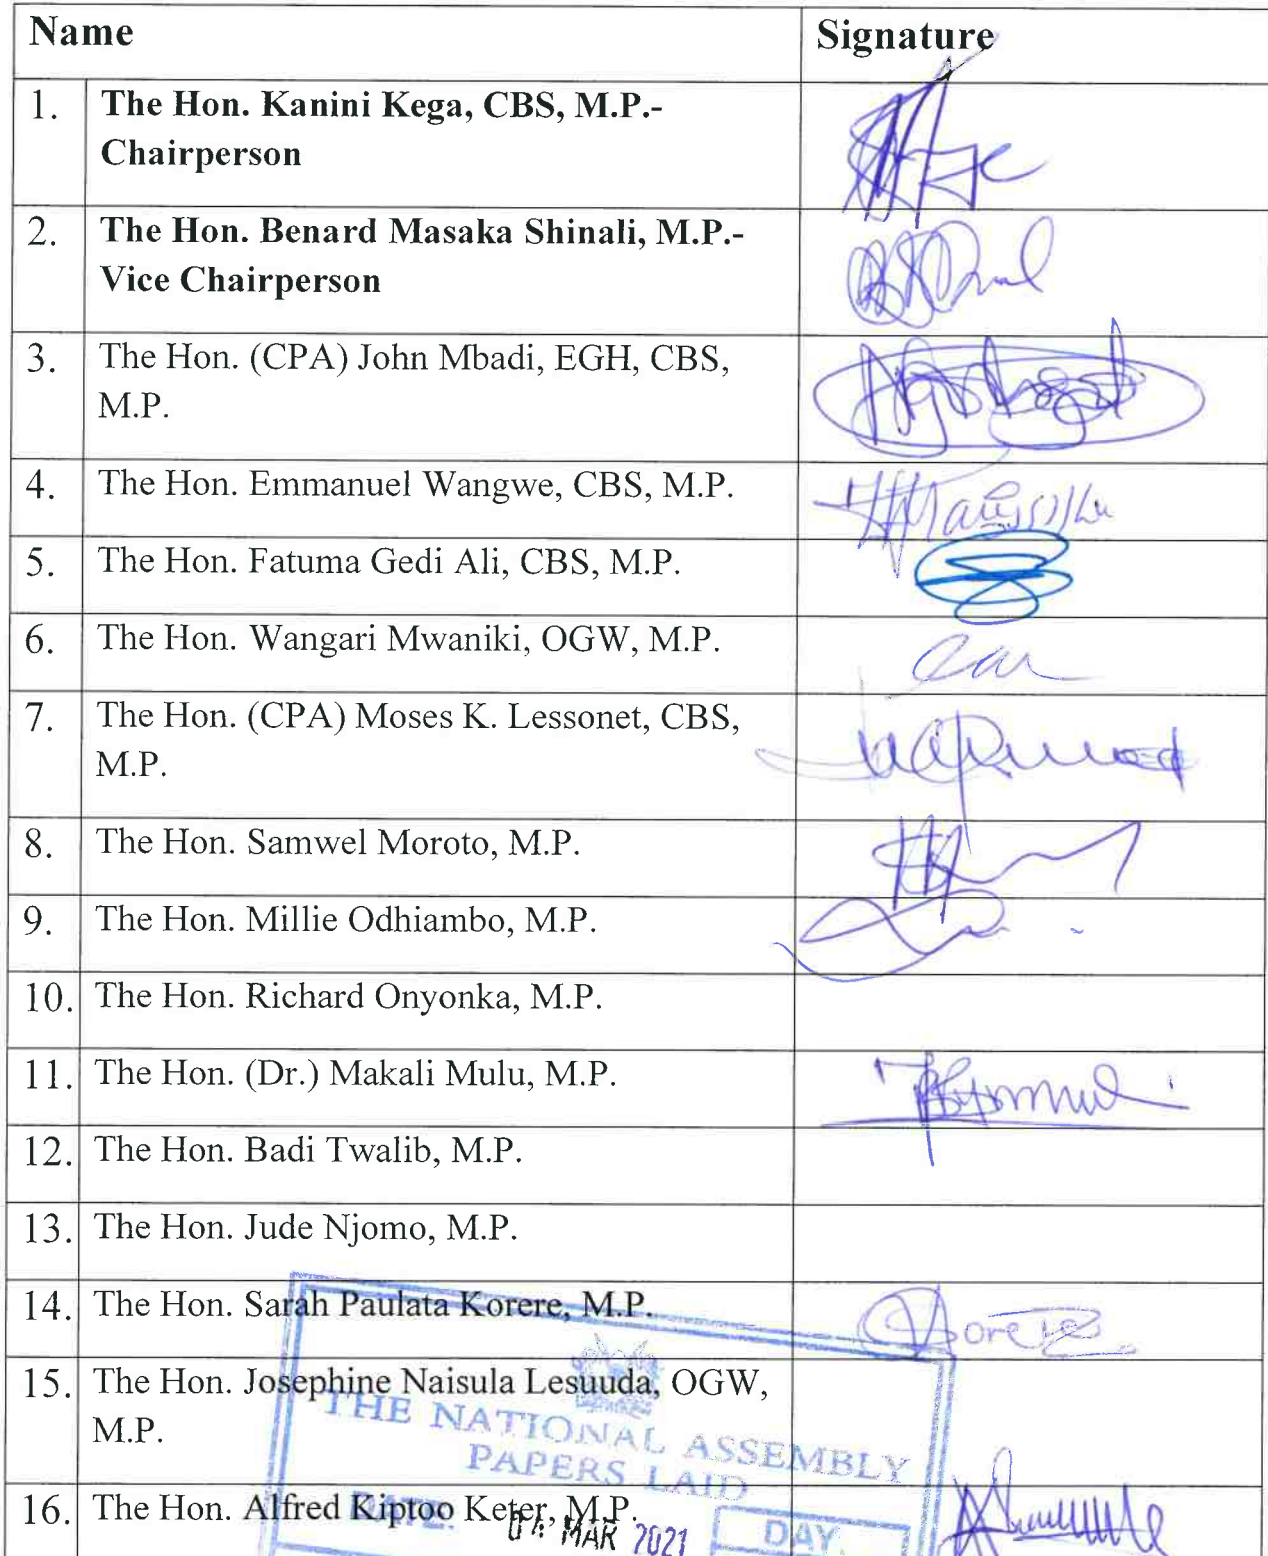 Name Signature
1. The Hon. Kanini Kega, CBS, M.P.-
Chairperson
2. The Hon. Benard Masaka Shinali, M.P.-
Vice Chairperson
3. The Hon. (CPA) John Mbadi, EGH, CBS,
M.P.
4. The Hon. Emmanuel Wangwe, CBS, M.P.
5. The Hon. Fatuma Gedi Ali, CBS, M.P.
6. The Hon. Wangari Mwaniki, OGW, M.P.
7. The Hon. (CPA) Moses K. Lessonet, CBS,
M.P.
8. The Hon. Samwel Moroto, M.P.
9. The Hon. Millie Odhiambo, M.P.
10. The Hon. Richard Onyonka, M.P.
11. The Hon. (Dr.) Makali Mulu, M.P.
12. The Hon. Badi Twalib, M.P.
13. The Hon. Jude Njomo, M.P.
14. The Hon. Sarah Paulata Korere, M.P.
15. The Hon. Josephine Naisula Lesuuda, OGW,
M.P.
THE NATIONAL ASSEMBLY
PAPERS LAID
16. The Hon. Alfred Kiptoo Keter, M.P.
DATE: MAR 2021 DAY.